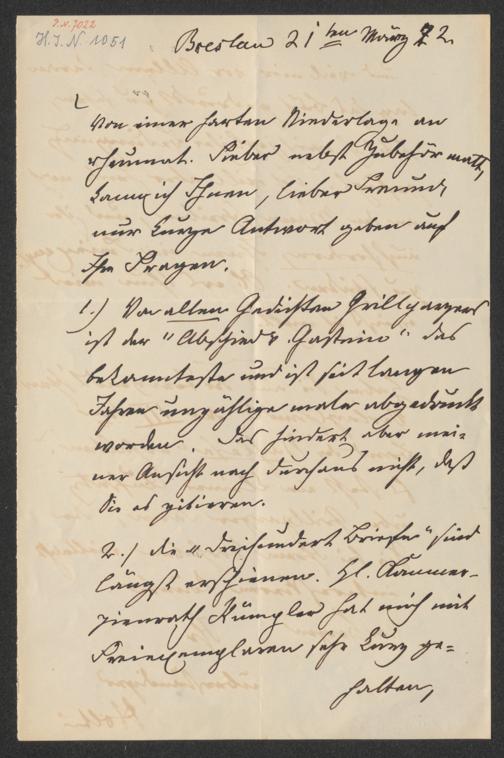 I.N. 7022
H.I.N. 1051
Breslau 21ten März 72.
Von einer harten Niederlage an
rheumat. Fieber nebst Zubehör matt,
kann ich Ihnen, lieber Freund,
nur kurze Antwort geben auf
Ihre Fragen.
1.) Von allen Gedichten Grillparzers
ist der "Abschied v. Gastein" das
bekannteste und ist seit langen
Jahren unzählige male abgedruckt
worden. Das hindert aber mei-
ner Ansicht nach durchaus nicht, daß
Sie es zitieren.
2.) die "Dreihundert Briefe" sind
längst erschienen. Hl. Kommer-
zienrath Rümpler hat mich mit
Freiexemplaren sehr kurz ge-
halten,